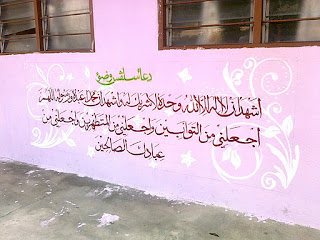 دعاء سلفس وضوء
اشهد ان لا اله الا الله وحده لا شريك له واشهد ان محمدا عبده ورسوله اللهم
اجعلني من التوابين واجعلني من المتطهرين واجعلني من
عبادك الصالحين